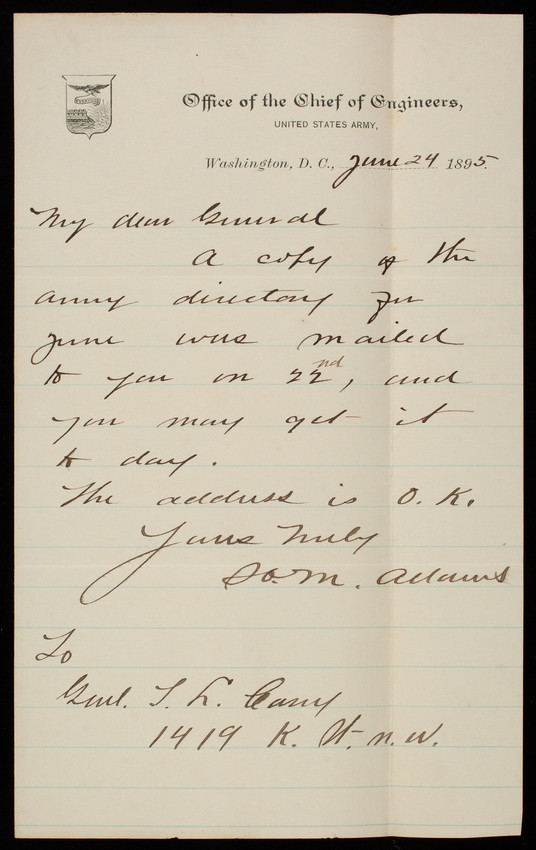 Office of the Chief of Engineers,
UNITED STATES ARMY,
Washington, D. C., June 24 1895.
My dear General
A copy of the
army directory for
June was mailed
to you on 22nd, and
you may get it
to day.
The address is O. K.
Yours truly
M. Adams
To
Genl. T. L. Casey
1419 K. St. N. W.